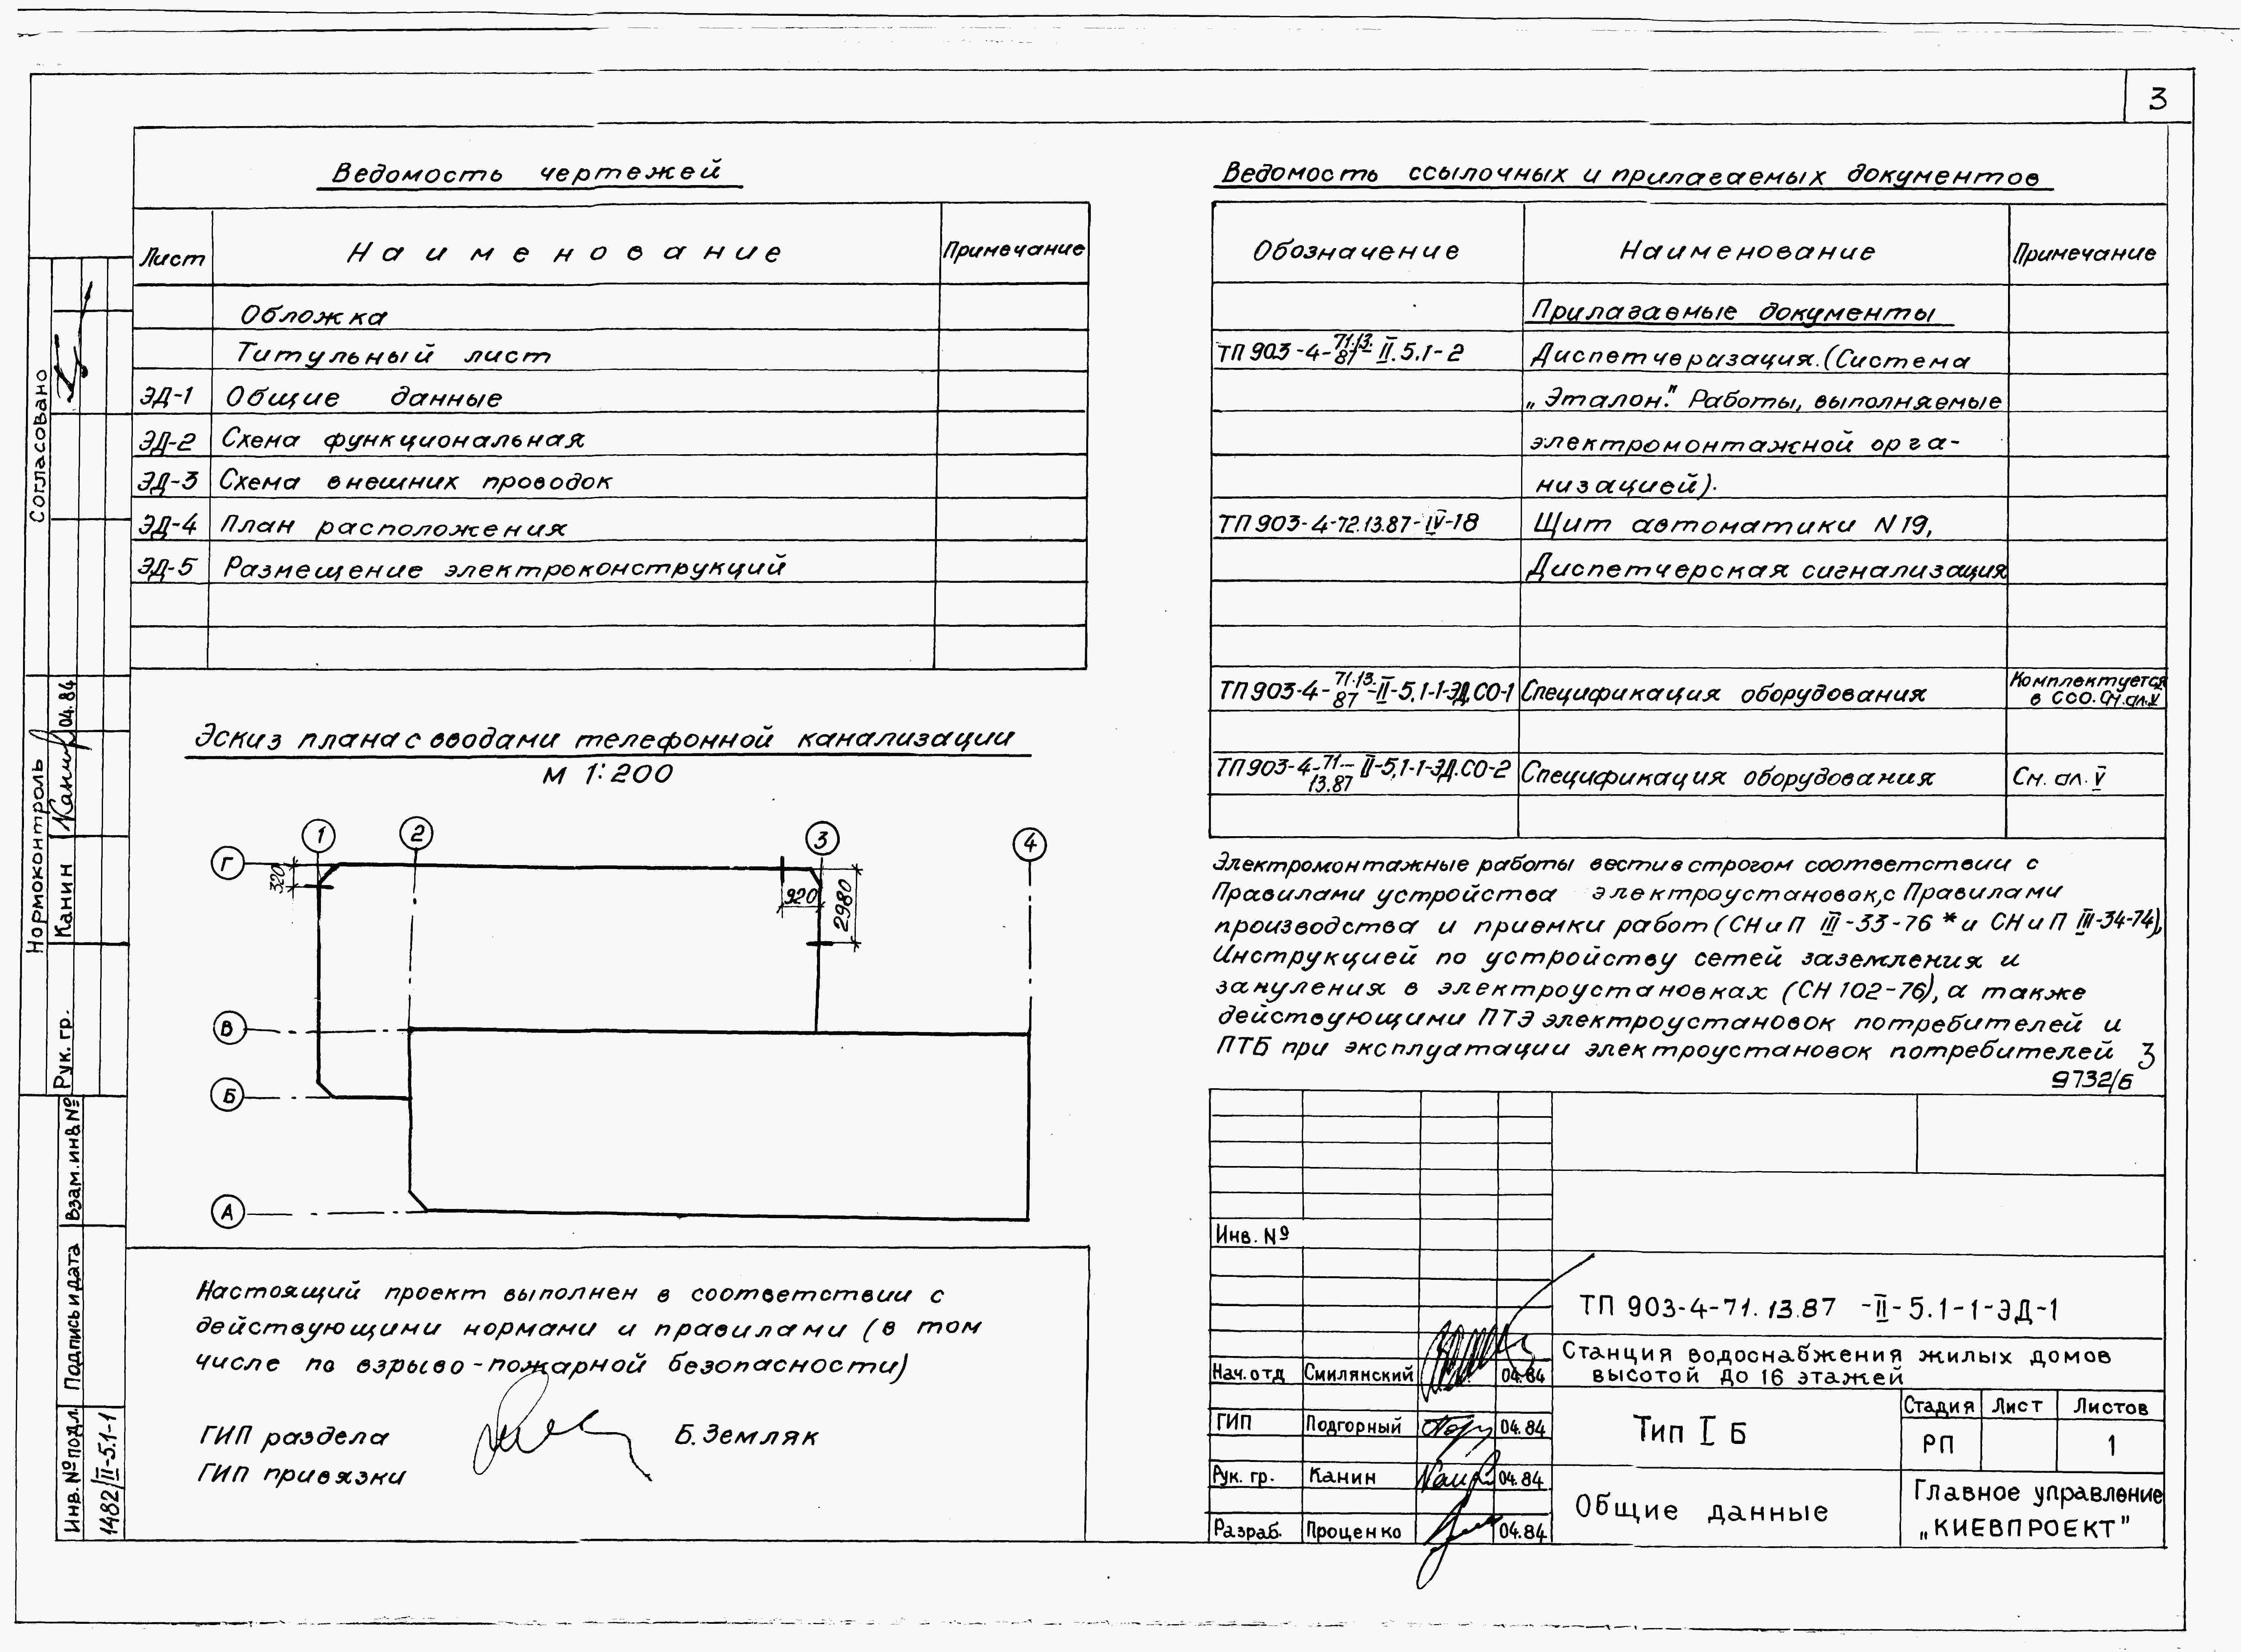 3
Ведомость чертежей
Лист Наименование Примечание
Обложка
Титульный лист
ЭД-1 Общие данные
ЭД-2 Схема функциональная
ЭД-3 Схема внешних проводок
ЭД-4 План расположения
ЭД-5 Размещение электроконструкций
Эскиз плана с вводами телефонной канализации
М 1:200
1 2 3 4
Г
В
Б
А
320
920
2980
Настоящий проект выполнен в соответствии с
действующими нормами и правилами (в том
числе по взрыво-пожарной безопасности)
ГИП раздела Б. Земляк
ГИП привязки
Ведомость ссылочных и прилагаемых документов
Обозначение Наименование Примечание
Прилагаемые документы
ТП 903-4-71.13.87-II.5.1-2 Диспетчеризация. (Система
„Эталон." Работы, выполняемые
электромонтажной орга-
низацией).
ТП 903-4-72.13.87-IV-18 Щит автоматики N 19,
Диспетчерская сигнализация
ТП 903-4-71.13.87-II-5.1-1-ЭД.СО-1 Спецификация оборудования Комплектуется
в ССО. См. ал. V
ТП 903-4-71-13.87 II-5.1-1-ЭД.СО-2 Спецификация оборудования См. ал. V
Электромонтажные работы вести в строгом соответствии с
Правилами устройства электроустановок, с Правилами
производства и приемки работ (СНиП III-33-76* и СНиП III-34-74),
Инструкцией по устройству сетей заземления и
зануления в электроустановках (СН 102-76), а также
действующими ПТЭ электроустановок потребителей и
ПТБ при эксплуатации электроустановок потребителей 3
9732/6
Инв. №
ТП 903-4-71.13.87 -II-5.1-1-ЭД-1
Станция водоснабжения жилых домов
высотой до 16 этажей
Нач. отд Смилянский 04.84
ГИП Подгорный 04.84
Рук. гр. Канин 04.84
Разраб. Проценко 04.84
Тип I Б
Стадия Лист Листов
РП 1
Общие данные
Главное управление
„КИЕВПРОЕКТ"
Согласовано
Нормоконтроль
Рук. гр. Канин Канин 04.84
Взам. инв №
Подпись и дата
Инв. № подл.
1482/II-5.1-1